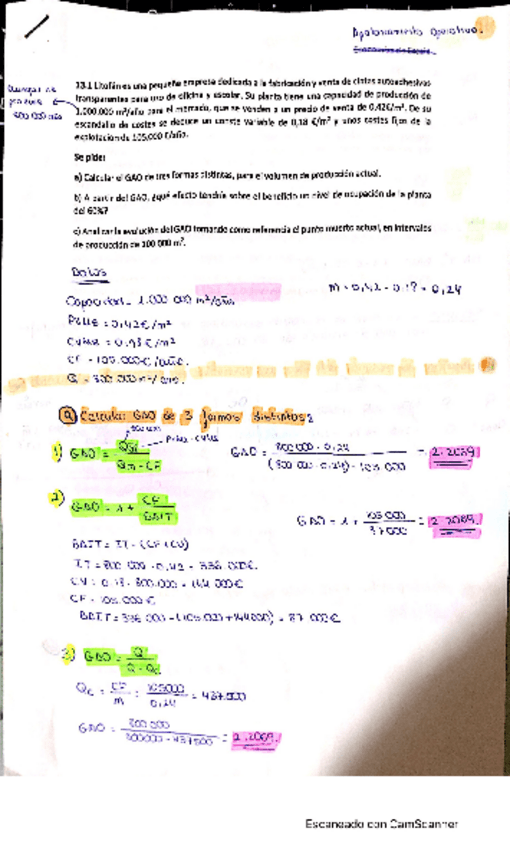 Apalancamiento Operativo.
Economías de Escala.
produce
800 000 m²/año
13.1 Litofán es una pequeña empresa dedicada a la fabricación y venta de cintas autoadhesivas
transparentes para uso de oficina y escolar. Su planta tiene una capacidad de producción de
1.000.000 m²/año para el mercado, que se venden a un precio de venta de 0,42€/m². De su
escandallo de costes se deduce un coste variable de 0,18 €/m² y unos costes fijos de la
explotación de 105.000 €/año.
Se pide:
a) Calcular el GAO de tres formas distintas, para el volumen de producción actual.
b) A partir del GAO, ¿qué efecto tendría sobre el beneficio un nivel de ocupación de la planta
del 60%?
c) Analizar la evolución del GAO tomando como referencia el punto muerto actual, en intervalos
de producción de 100 000 m².
Datos
Capacidad = 1.000 000 m²/año
m = 0,42 - 0,18 = 0,24
= 0,42€/m²
= 0,18€/m²
CF = 105.000€/año.
Q = 800 000 m²/año.
a) Calcular GAO de 3 formas distintas:
1) GAO = Qm / Qm - CF
GAO = 800 000 · 0,24 / (800 000 · 0,24) - 105 000 = 2.2069
2) GAO = 1 + CF / BAIT
GAO = 1 + 105 000 / 87 000 = 2.2069.
BAIT = IT - (CF + CV)
IT = 800 000 · 0,42 = 336.000€.
CV = 0.18 · 800.000 = 144 000€
CF = 105.000€
BAIT = 336 000 - (105 000 + 144000) = 87 000€
3) GAO = Q / Q - Qc
Qc = CF / m = 105000 / 0,24 = 437.500
GAO = 800 000 / 800000 - 437500 = 2.2069.
Escaneado con CamScanner